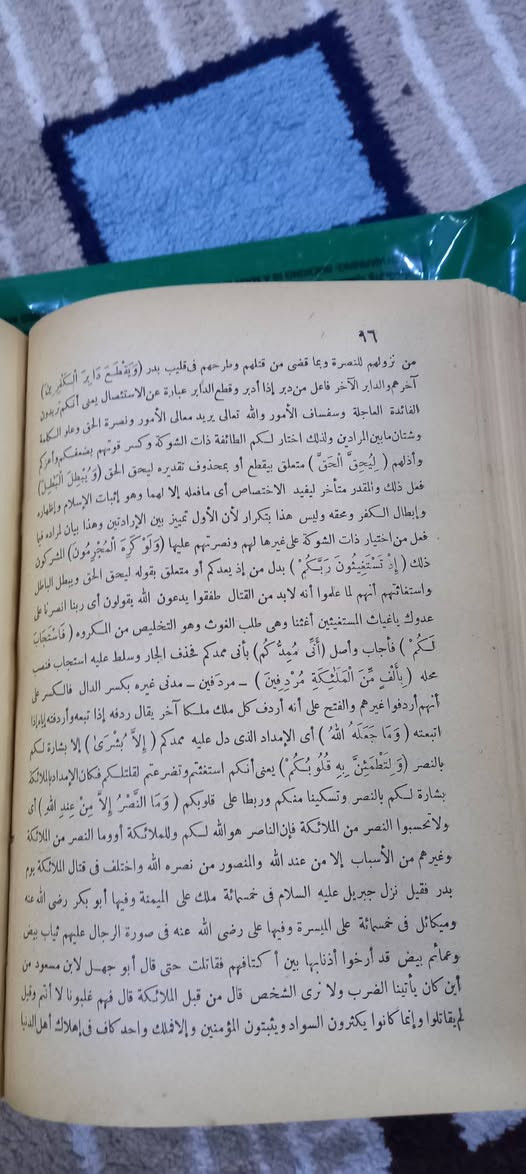 ٩٦
من نزولهم للنصرة وبما قضى من قتلهم وطرحهم فى قليب بدر (وَيَقْطَعَ دَابِرَ الْكَٰفِرِينَ)
آخرهم والدابر الآخر فاعل من دبر إذا أدبر وقطع الدابر عبارة عن الاستئصال يعنى أنكم تريدون
الفائدة العاجلة وسفساف الأمور والله تعالى يريد معالى الأمور ونصرة الحق وعلو الكلمة
وشتان ما بين المرادين ولذلك اختار لكم الطائفة ذات الشوكة وكسر قوتهم بضعفكم وأعزكم
وأذلهم (لِيُحِقَّ الْحَقَّ) متعلق بيقطع أو بمحذوف تقديره ليحق الحق (وَيُبْطِلَ الْبَٰطِلَ)
فعل ذلك والمقدر متأخر ليفيد الاختصاص أى مافعله إلا لهما وهو إثبات الإسلام وإظهاره
وإبطال الكفر ومحقه وليس هذا بتكرار لأن الأول تمييز بين الإرادتين وهذا بيان لمراده فيما
فعل من اختيار ذات الشوكة على غيرها لهم ونصرتهم عليها (وَلَوْ كَرِهَ الْمُجْرِمُونَ) المشركون
ذلك (إِذْ تَسْتَغِيثُونَ رَبَّكُمْ) بدل من إذ يعدكم أو متعلق بقوله ليحق الحق ويبطل الباطل
واستغاثتهم أنهم لما علموا أنه لابد من القتال طفقوا يدعون الله يقولون أى ربنا انصرنا على
عدوك ياغياث المستغيثين أغثنا وهى طلب الغوث وهو التخليص من المكروه (فَاسْتَجَابَ
لَكُمْ) فأجاب وأصل (أَنِّى مُمِدُّكُم) بأنى ممدكم فحذف الجار وسلط عليه استجاب فنصب
محله (بِأَلْفٍ مِّنَ الْمَلَٰئِكَةِ مُرْدِفِينَ) ــ مردفين ــ مدنى غيره بكسر الدال فالكسر على
أنهم أردفوا غيرهم والفتح على أنه أردف كل ملك ملكا آخر يقال ردفه إذا تبعه وأردفته إياه إذا
اتبعته (وَمَا جَعَلَهُ اللهُ) أى الإمداد الذى دل عليه ممدكم (إِلاَّ بُشْرَىٰ) إلا بشارة لكم
بالنصر (وَلِتَطْمَئِنَّ بِهِ قُلُوبُكُمْ) يعنى أنكم استغثتم وتضرعتم لقلتكم فكان الإمداد بالملائكة
بشارة لكم بالنصر وتسكينا منكم وربطا على قلوبكم (وَمَا النَّصْرُ إِلاَّ مِنْ عِندِ اللهِ) أى
ولا تحسبوا النصر من الملائكة فإن الناصر هو الله لكم وللملائكة أو وما النصر من الملائكة
وغيرهم من الأسباب إلا من عند الله والمنصور من نصره الله واختلف فى قتال الملائكة يوم
بدر فقيل نزل جبريل عليه السلام فى خمسمائة ملك على الميمنة وفيها أبو بكر رضى الله عنه
وميكائل فى خمسمائة على الميسرة وفيها على رضى الله عنه فى صورة الرجال عليهم ثياب بيض
وعمائم بيض قد أرخوا أذنابها بين أكتافهم فقاتلت حتى قال أبو جهل لابن مسعود من
أين كان يأتينا الضرب ولا نرى الشخص قال من قبل الملائكة قال فهم غلبونا لا أنتم وقيل
لم يقاتلوا وإنما كانوا يكثرون السواد ويثبتون المؤمنين وإلا فملك واحد كاف فى إهلاك أهل الدنيا